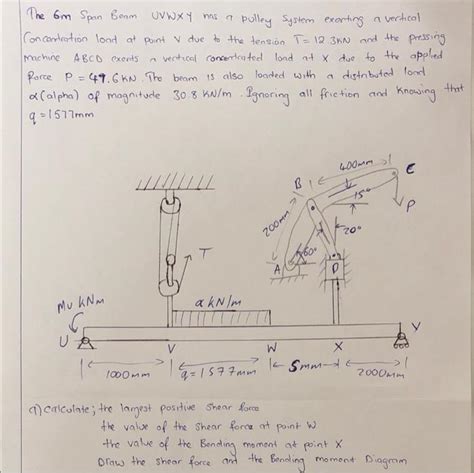 The 6m Span Beam UVWXY has a pulley System exerting a vertical
Concentration load at point V due to the tension T = 12.3KN and the pressing
machine ABCD exerts a vertical concentrated load at X due to the applied
Force P = 49.6KN. The beam is also loaded with a distributed load
α(alpha) of magnitude 30.8 KN/m. Ignoring all friction and knowing that
q = 1577mm
400mm
B
E
15°
P
200mm
20°
60°
A
D
T
α kN/m
Mu KNm
U
V
W
X
Y
1000mm
q = 1577mm
Smm
2000mm
a) Calculate; the largest positive Shear force
the value of the Shear force at point W
the value of the Bending moment at point X
Draw the shear force and the Bending moment Diagram